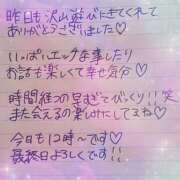 昨日も沢山遊びにきてくれて
ありがとうございました♡
いっぱいエッチな事したり
お話も楽しくて幸せ気分♡
時間経つの早すぎてびっくり!!笑
また会えるの楽しみにしてるね♡
今日も12時〜です♡
最終日よろしくです!!